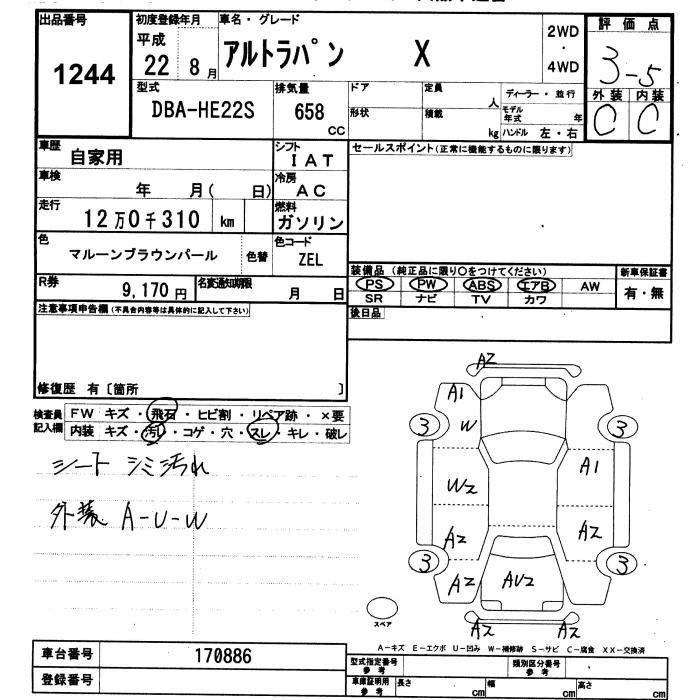 出品番号
1244
初度登録年月
平成
22 8月
車名・グレード
アルトラパン X
2WD
・
4WD
評価点
3-5
外装 内装
C C
型式
DBA-HE22S
排気量
658
cc
ドア
形状
定員
人
積載
kg
ディーラー・並行
モデル年式 年
ハンドル 左・右
車歴
自家用
シフト
IAT
セールスポイント(正常に機能するものに限ります)
車検
年 月( 日)
冷房
AC
走行
12万0千310 km
燃料
ガソリン
色
マルーンブラウンパール
色替
色コード
ZEL
装備品 (純正品に限り○をつけてください)
新車保証書
PS PW ABS エアB AW
有・無
SR ナビ TV カワ
R券
9,170円
名変通知期限
月 日
後日品
注意事項申告欄(不具合内容等は具体的に記入して下さい)
修復歴 有〔箇所 〕
検査員記入欄
FW キズ・飛石・ヒビ割・リペア跡・×要
内装 キズ・汚レ・コゲ・穴・スレ・キレ・破レ
シート シミ汚れ
外装 A-U-W
A2
A1
W
3 3
W2 A1
A2 A2
3 3
A2 AU2
A2 A2
スペア
A-キズ E-エクボ U-凹み W-補修跡 S-サビ C-腐食 XX-交換済
車台番号
170886
登録番号
型式指定番号
参考
類別区分番号
参考
車庫証明用
参考
長さ cm
幅 cm
高さ cm